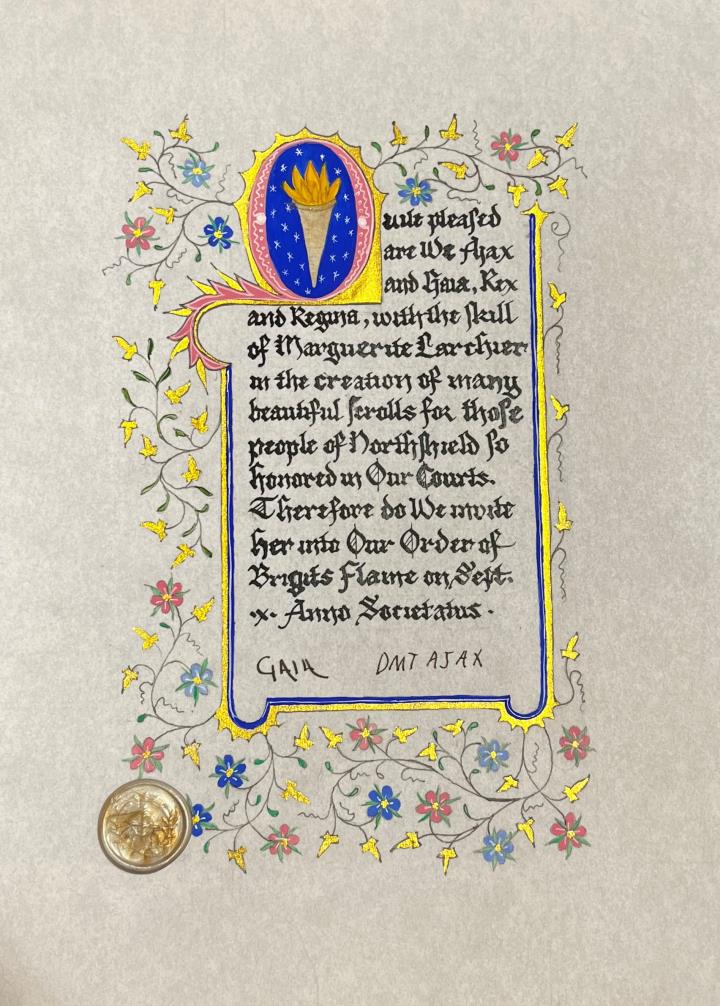 Quite pleased
are We Ajax
and Gaia, Rex
and Regina, with the skill
of Marguerite Larchier
in the creation of many
beautiful scrolls for those
people of Northshield so
honored in Our Courts.
Therefore do We invite
her into Our Order of
Brigits Flame on, Sept.
·x· Anno Societatus ·
GAIA DMT AJAX